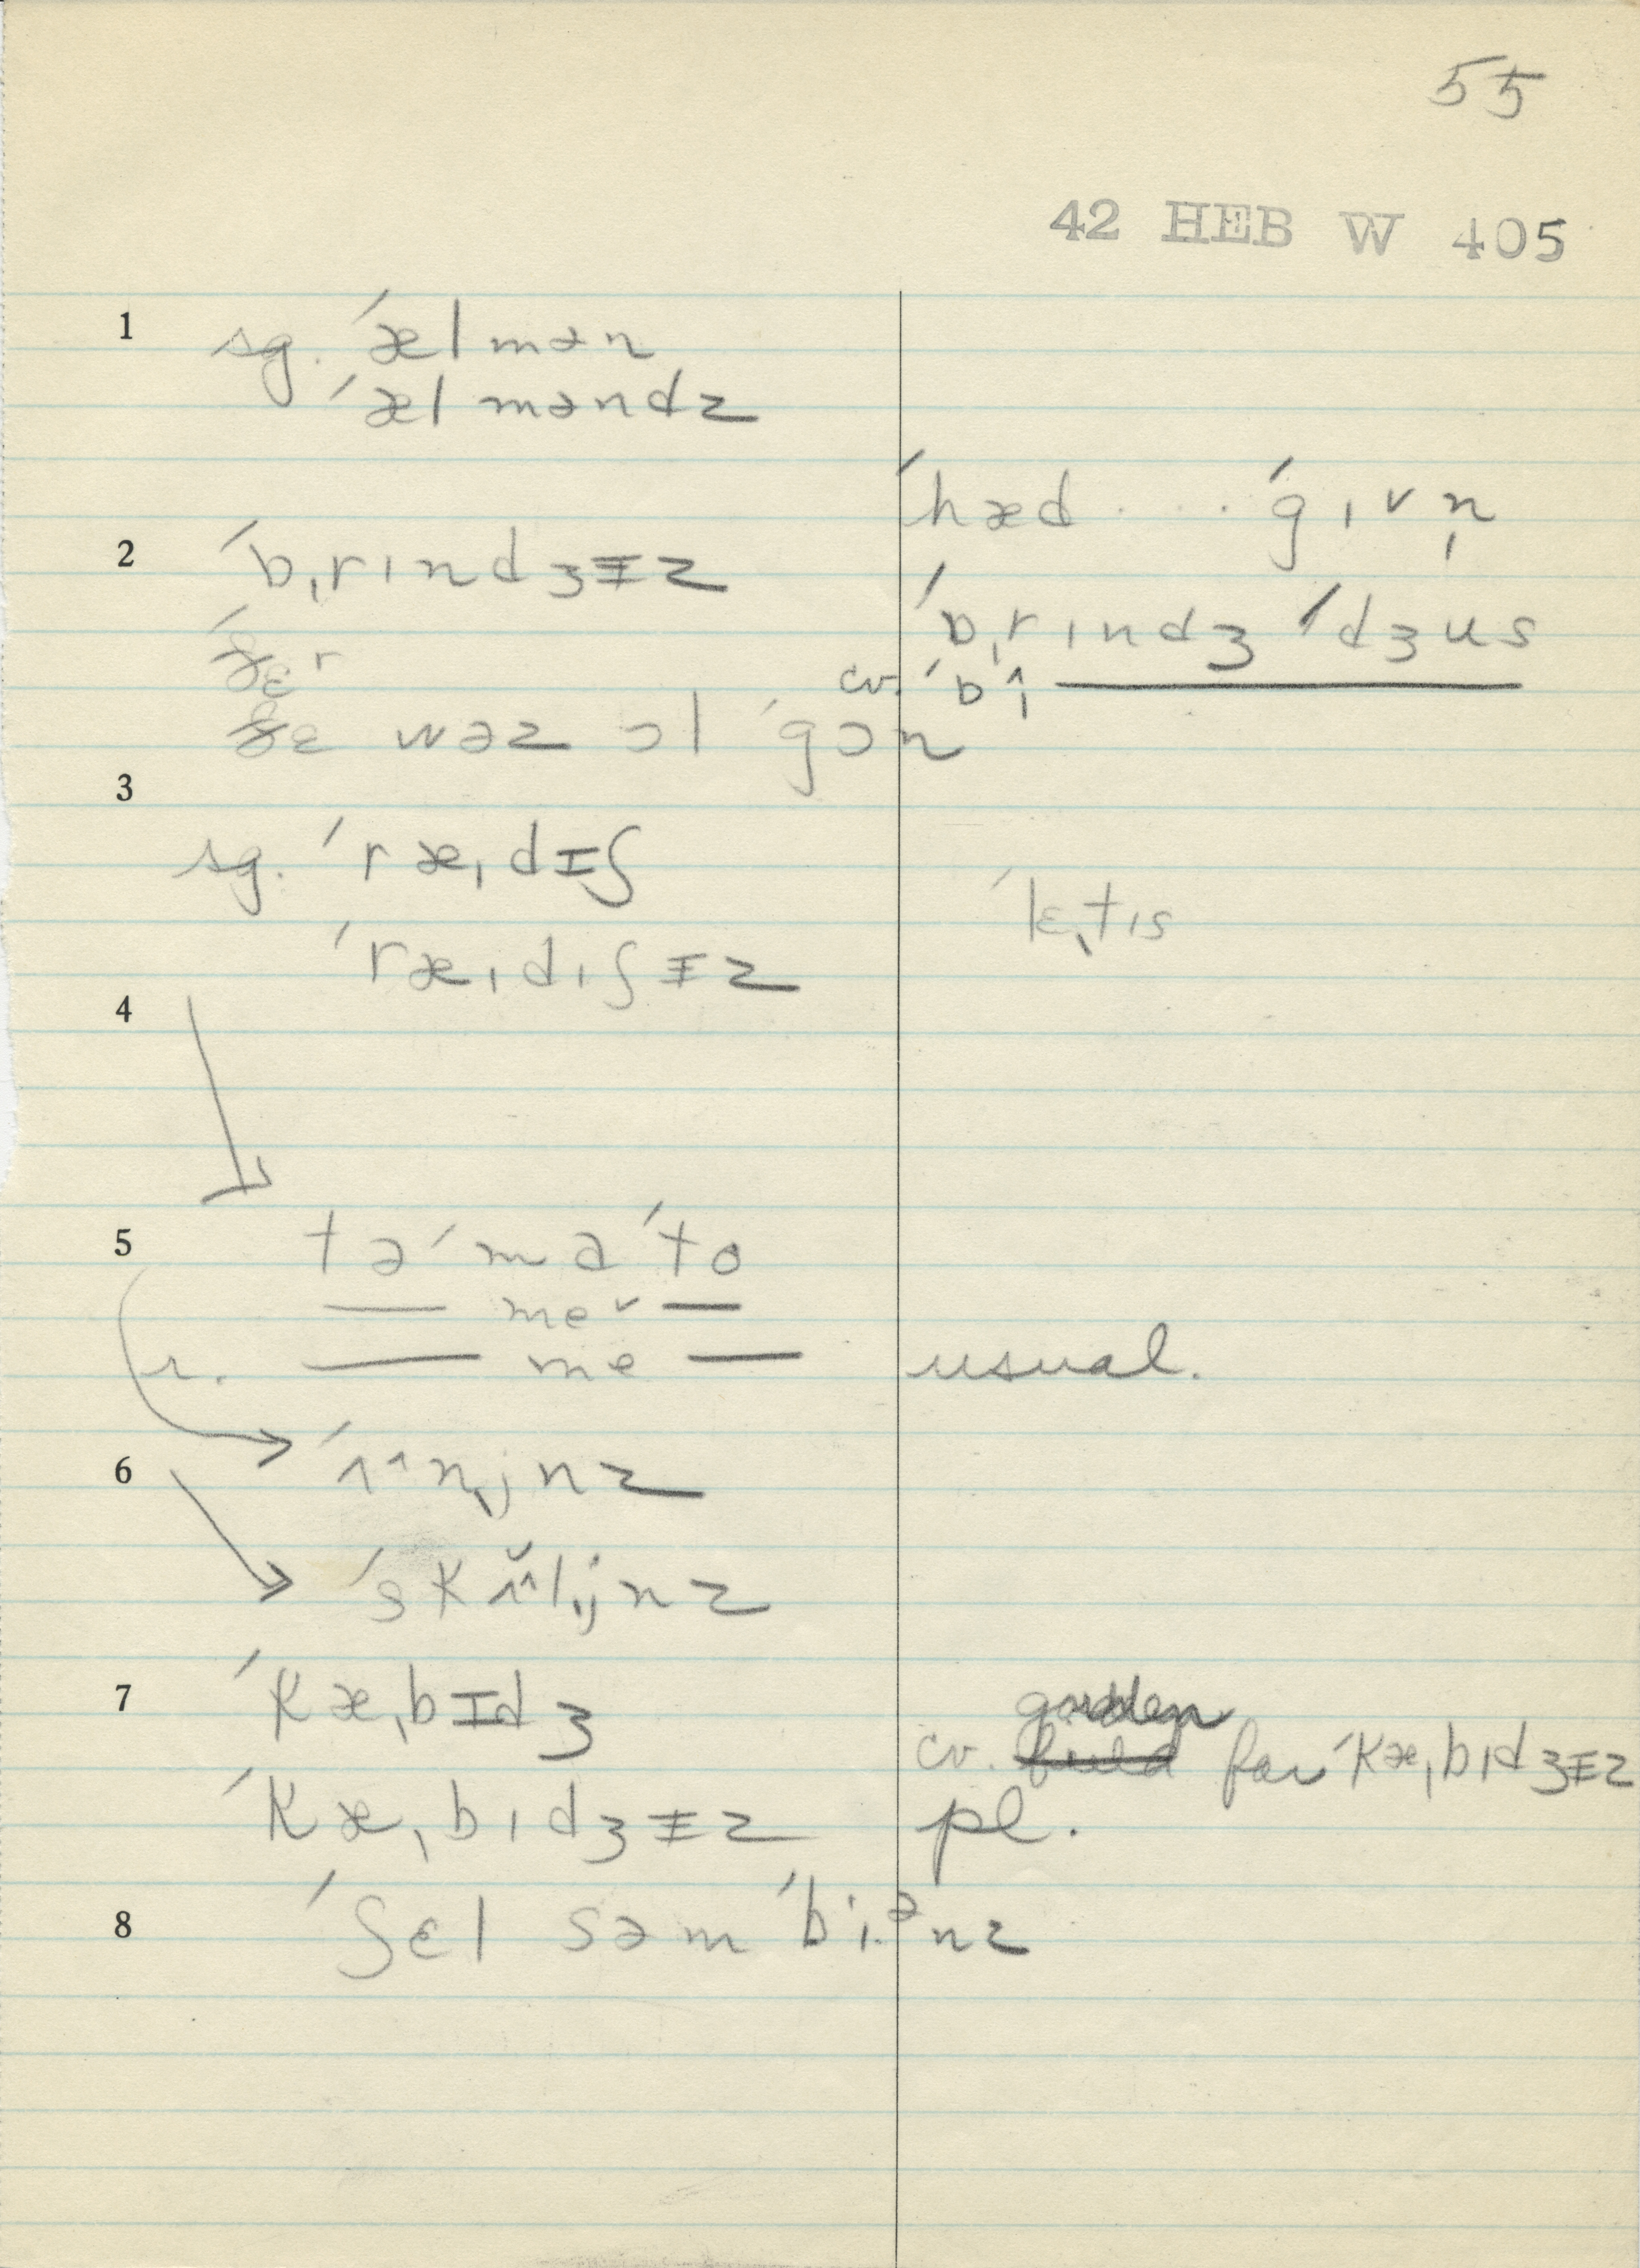 55
42 HEB W 405
1 sg. ´æl mən
´æl məndz
´hæd . . . ´gɪvn̩
2 ´bˌrɪndʒɪ̵z
´bˌrɪndʒ ´dʒus
ðɛr
cv. ´bʌ̢ ———
ðɛ wəz ɔl ´gɔn
3
sg. ´ræˌdɪʃ
´lɛˌtɪs
´ræˌdɪʃɪ̵z
4
5 tə´ma´to
— meˇ —
r. — me — usual.
´ʌ^nˌjnz
6
´skʌ̌^lˌjnz
7 ´kæˌbɪdʒ
garden
cv. field for ´kæˌbɪdʒɪ̵z
´kæˌbɪdʒɪ̵z pl.
8 ´ʃɛl səm ´biˑᵊnz